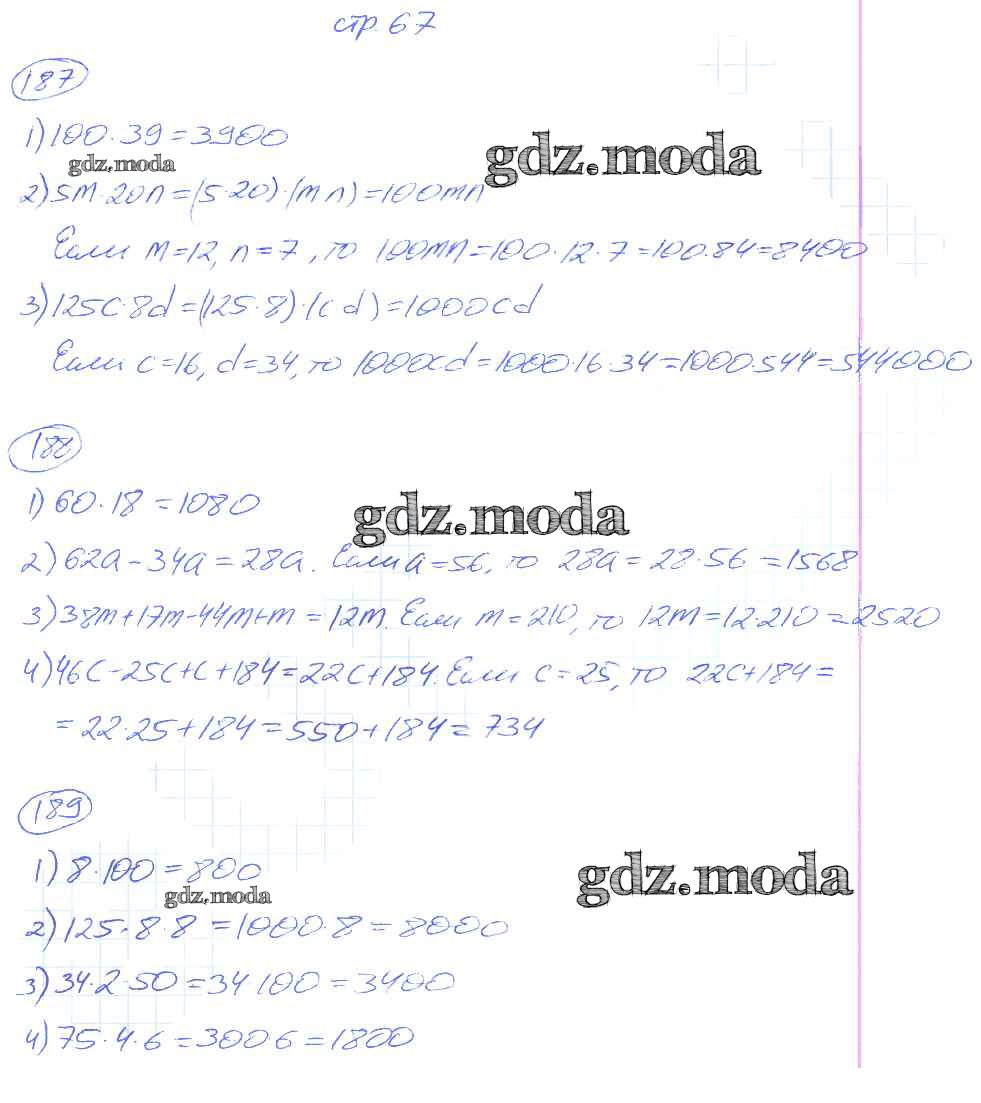 стр. 67
187
1) 100·39=3900
gdz.moda
gdz.moda
2) 5m·20n=(5·20)·(mn)=100mn
Если m=12, n=7, то 100mn=100·12·7=100·84=8400
3) 125c·8d=(125·8)·(cd)=1000cd
Если c=16, d=34, то 1000cd=1000·16·34=1000·544=544000
188
1) 60·18=1080
gdz.moda
2) 62a-34a=28a. Если a=56, то 28a=28·56=1568
3) 38m+17m-44m+m=12m. Если m=210, то 12m=12·210=2520
4) 46c-25c+c+184=22c+184. Если c=25, то 22c+184=
=22·25+184=550+184=734
189
1) 8·100=800
gdz.moda
gdz.moda
2) 125·8·8=1000·8=8000
3) 34·2·50=34 100=3400
4) 75·4·6=300·6=1800